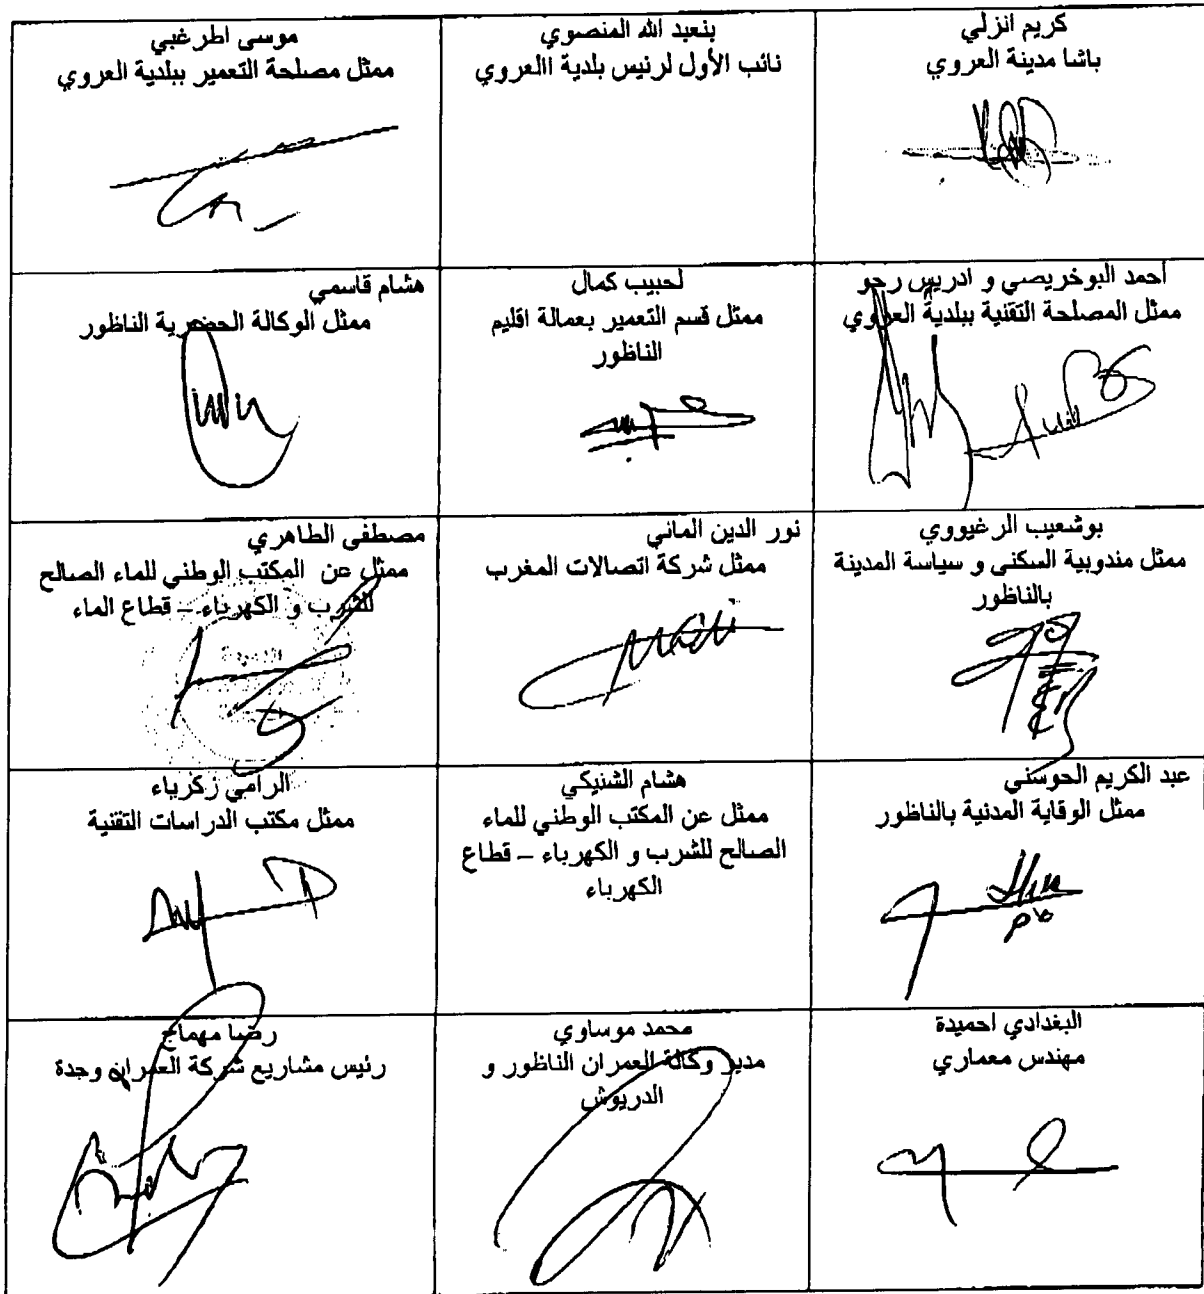 كريم انزلي
باشا مدينة العروي
بنعبد الله المنصوي
نائب الأول لرئيس بلدية االعروي
موسى اطرغبي
ممثل مصلحة التعمير ببلدية العروي
أحمد البوخريصي و ادريس رحو
ممثل المصلحة التقنية ببلدية العروي
لحبيب كمال
ممثل قسم التعمير بعمالة اقليم
الناظور
هشام قاسمي
ممثل الوكالة الحضرية الناظور
بوشعيب الرغيووي
ممثل مندوبية السكنى و سياسة المدينة
بالناظور
نور الدين الماني
ممثل شركة اتصالات المغرب
مصطفى الطاهري
ممثل عن المكتب الوطني للماء الصالح
للشرب و الكهرباء – قطاع الماء
عبد الكريم الحوسني
ممثل الوقاية المدنية بالناظور
هشام الشنيكي
ممثل عن المكتب الوطني للماء
الصالح للشرب و الكهرباء – قطاع
الكهرباء
الرامي زكرياء
ممثل مكتب الدراسات التقنية
البغدادي احميدة
مهندس معماري
محمد موساوي
مدير وكالة العمران الناظور و
الدريوش
رضا مهماج
رئيس مشاريع شركة العمران وجدة